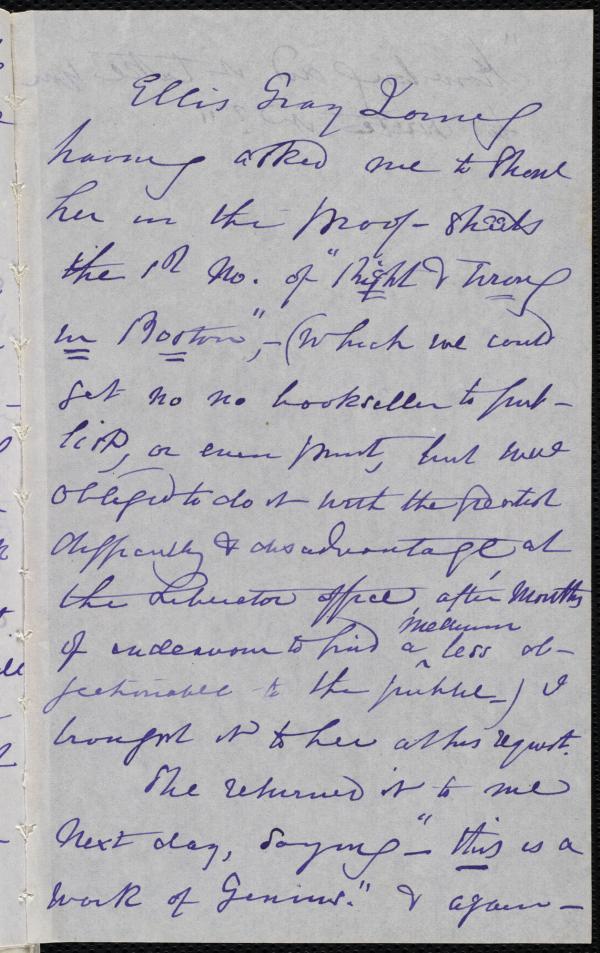 Ellis Gray Loring
having asked me to show
her in the proof-sheets
the 1st No. of "Right & Wrong
in Boston",- (which we could
get no no bookseller to pub-
lish, or even print, but were
obliged to do it with the greatest
difficulty & disadvantage at
the Liberator office after months
of endeavour to find a medium less ob-
jectionable to the public_) I
brought it to her at his request.
She returned it to me
next day, saying—"this is a
work of Genius." & again—